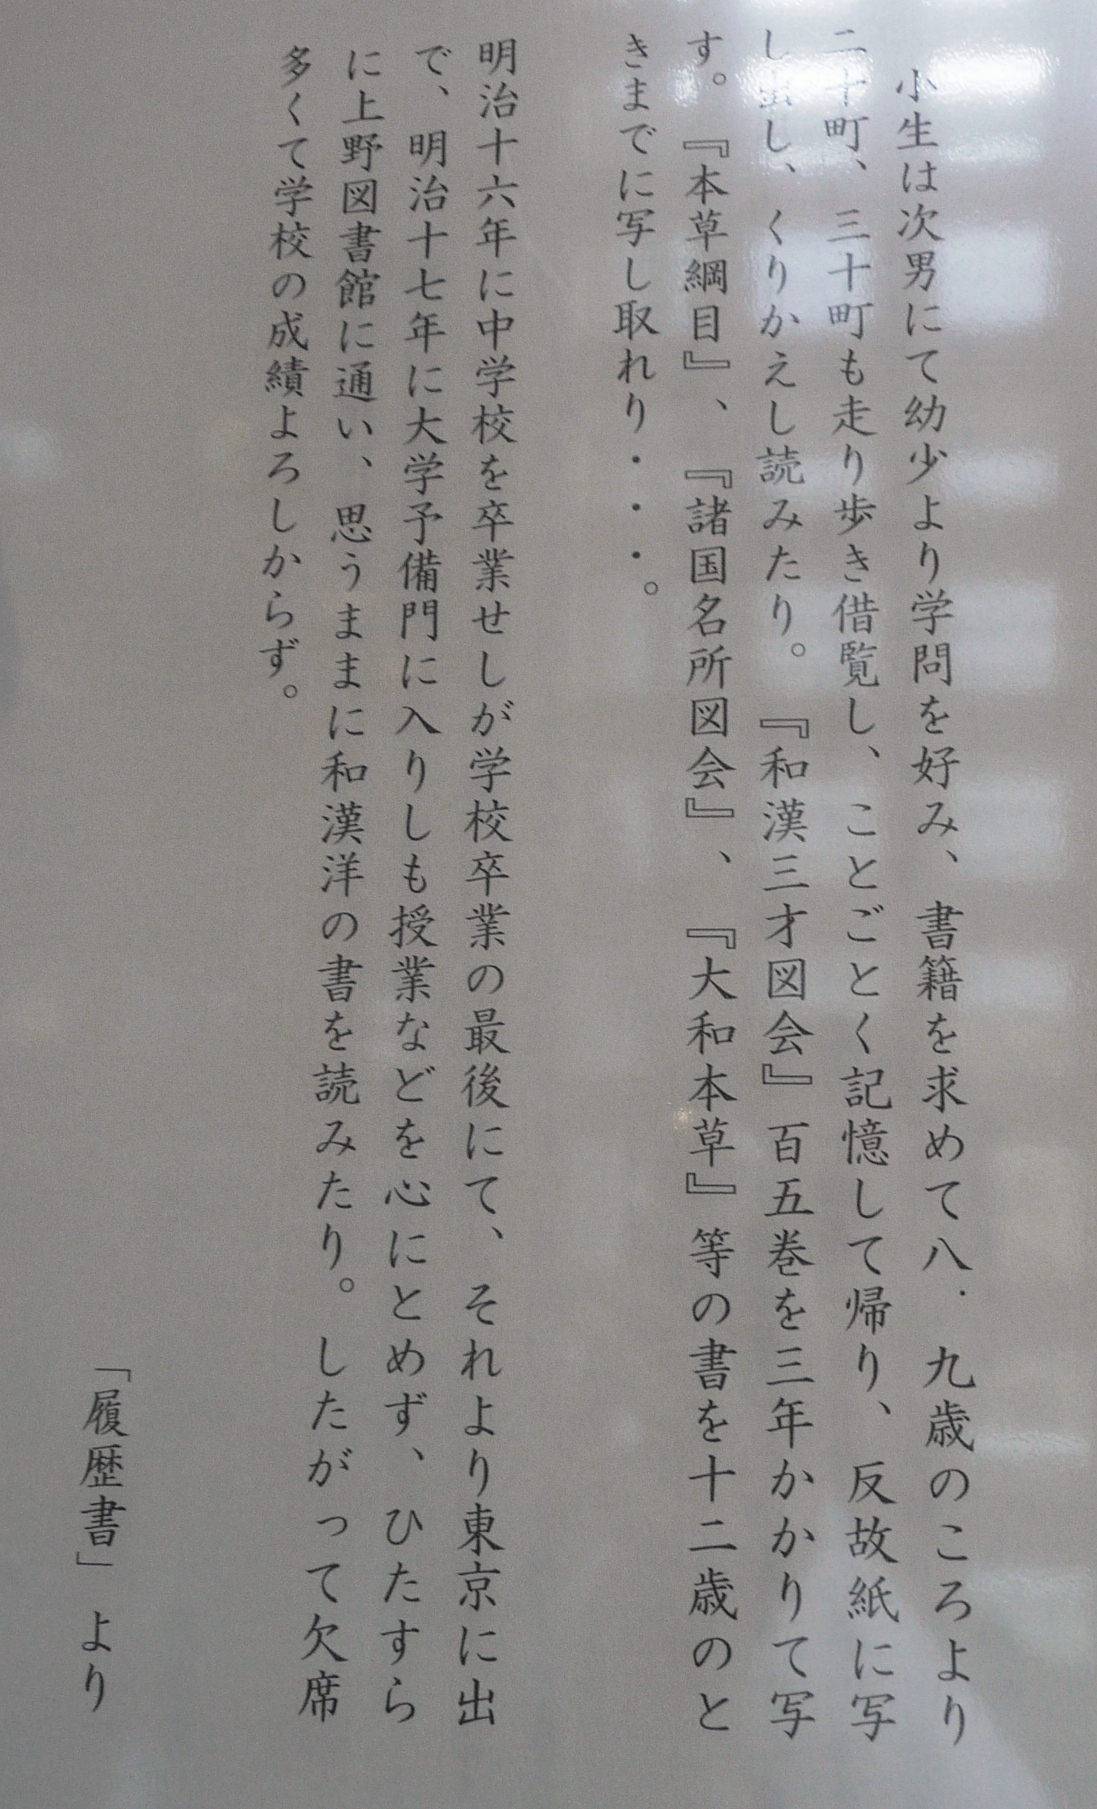 小生は次男にて幼少より学問を好み、書籍を求めて八．九歳のころより
二十町、三十町も走り歩き借覧し、ことごとく記憶して帰り、反故紙に写
し出し、くりかえし読みたり。『和漢三才図会』百五巻を三年かかりて写
す。『本草綱目』、『諸国名所図会』、『大和本草』等の書を十二歳のと
きまでに写し取れり・・・。
明治十六年に中学校を卒業せしが学校卒業の最後にて、それより東京に出
で、明治十七年に大学予備門に入りしも授業などを心にとめず、ひたすら
に上野図書館に通い、思うままに和漢洋の書を読みたり。したがって欠席
多くて学校の成績よろしからず。
「履歴書」より